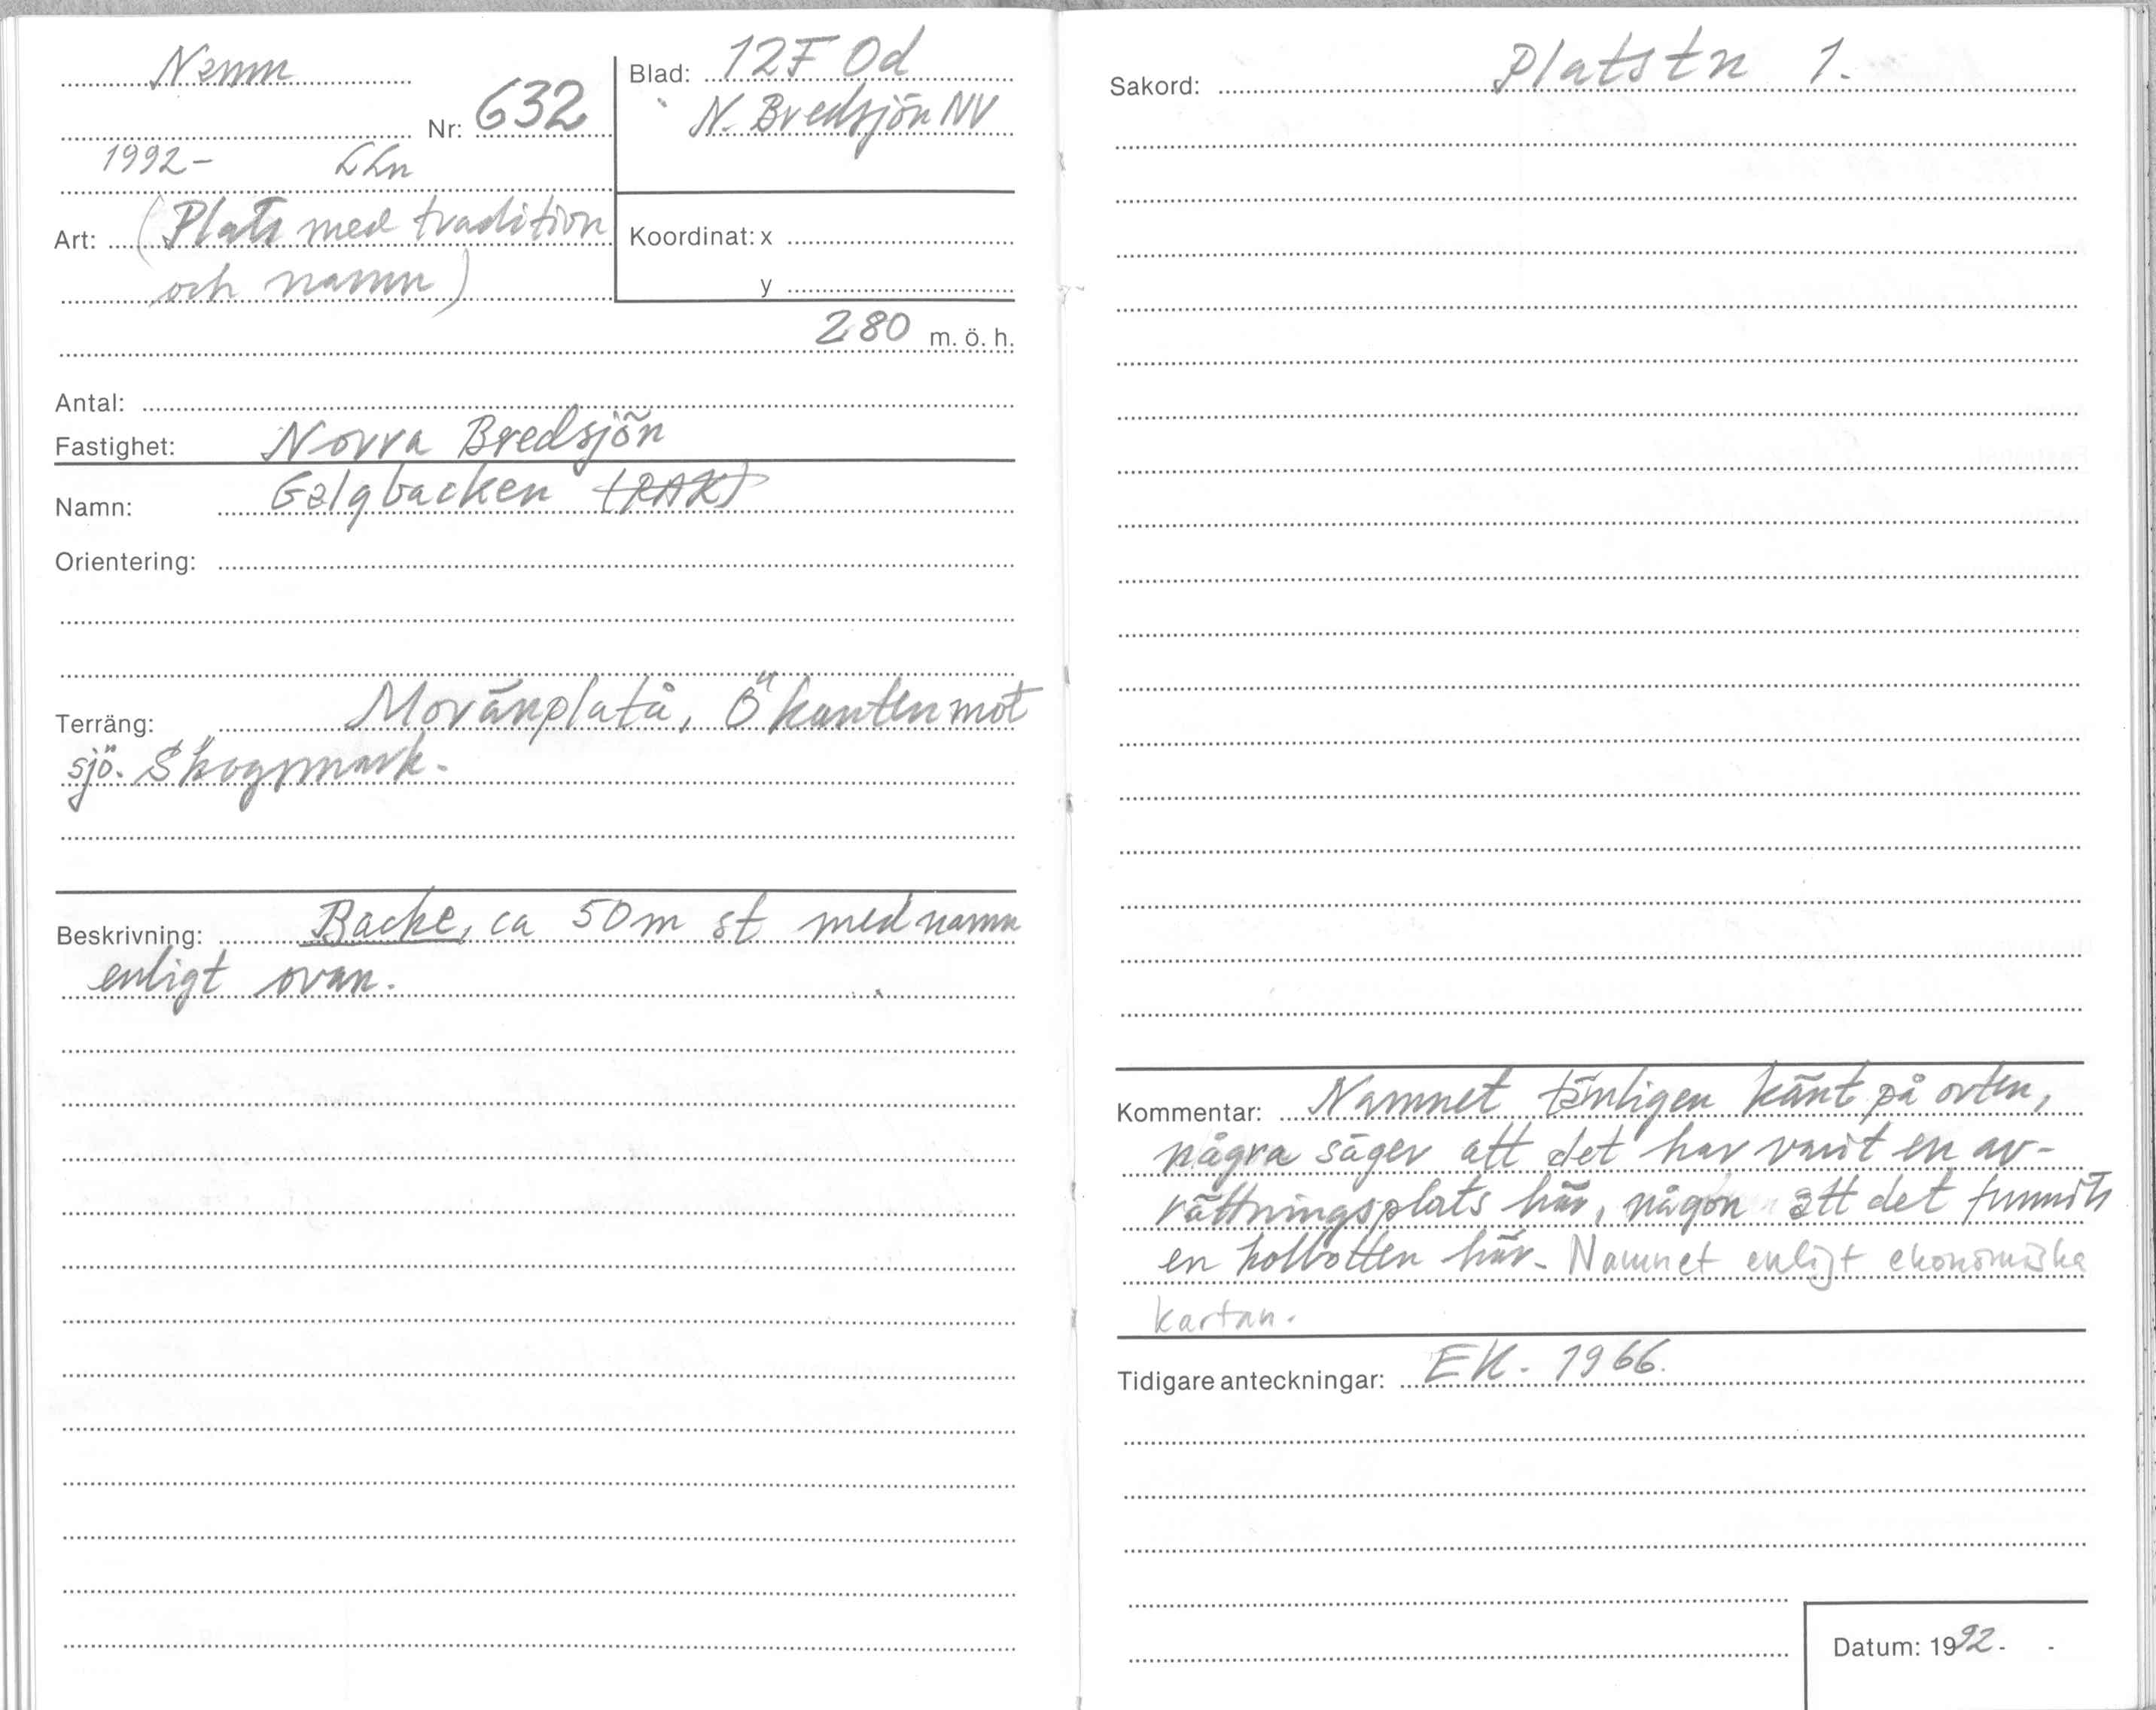 Namn
Nr: 632
1992- LLn
Art: (Plats med tradition
och namn)
Blad: 12F 0d
N. Bredsjön NV
Koordinat: x
y
280 m. ö. h.
Antal:
Fastighet: Norra Bredsjön
Namn: Galgbacken (RAK)
Orientering:
Terräng: Moränplatå, Ö kanten mot
sjö. Skogsmark.
Beskrivning: Backe, ca 50 m st med namn
enligt ovan.
Sakord: Platstn 1.
Kommentar: Namnet tämligen känt på orten,
några säger att det har varit en av-
rättningsplats här, någon att det funnits
en kolbotten här. Namnet enligt ekonomiska
kartan.
Tidigare anteckningar: EK. 1966.
Datum: 1992- -